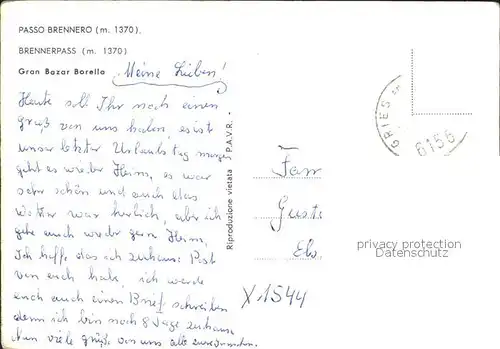 PASSO BRENNERO (m. 1370).
BRENNERPASS (m. 1370)
Gran Bazar Borella
Meine Lieben!
Heute soll Ihr noch einen
Gruß von uns haben, es ist
unser letzter Urlaubstag morgen
geht es wieder Heim, es war
sehr schön und auch das
Wetter war herlich, aber ich
gehe auch wieder gern Heim,
Ich hoffe das ich zuhause Post
von euch habe, ich werde
euch auch einen Brief schreiben
denn ich bin noch 8 Tage zuhause
Nun viele Grüße von uns alle
Riproduzione vietata P.A.V.R.
GRIES
6156
Fam
Gust
Ebs
privacy protection
Datenschutz
X1544